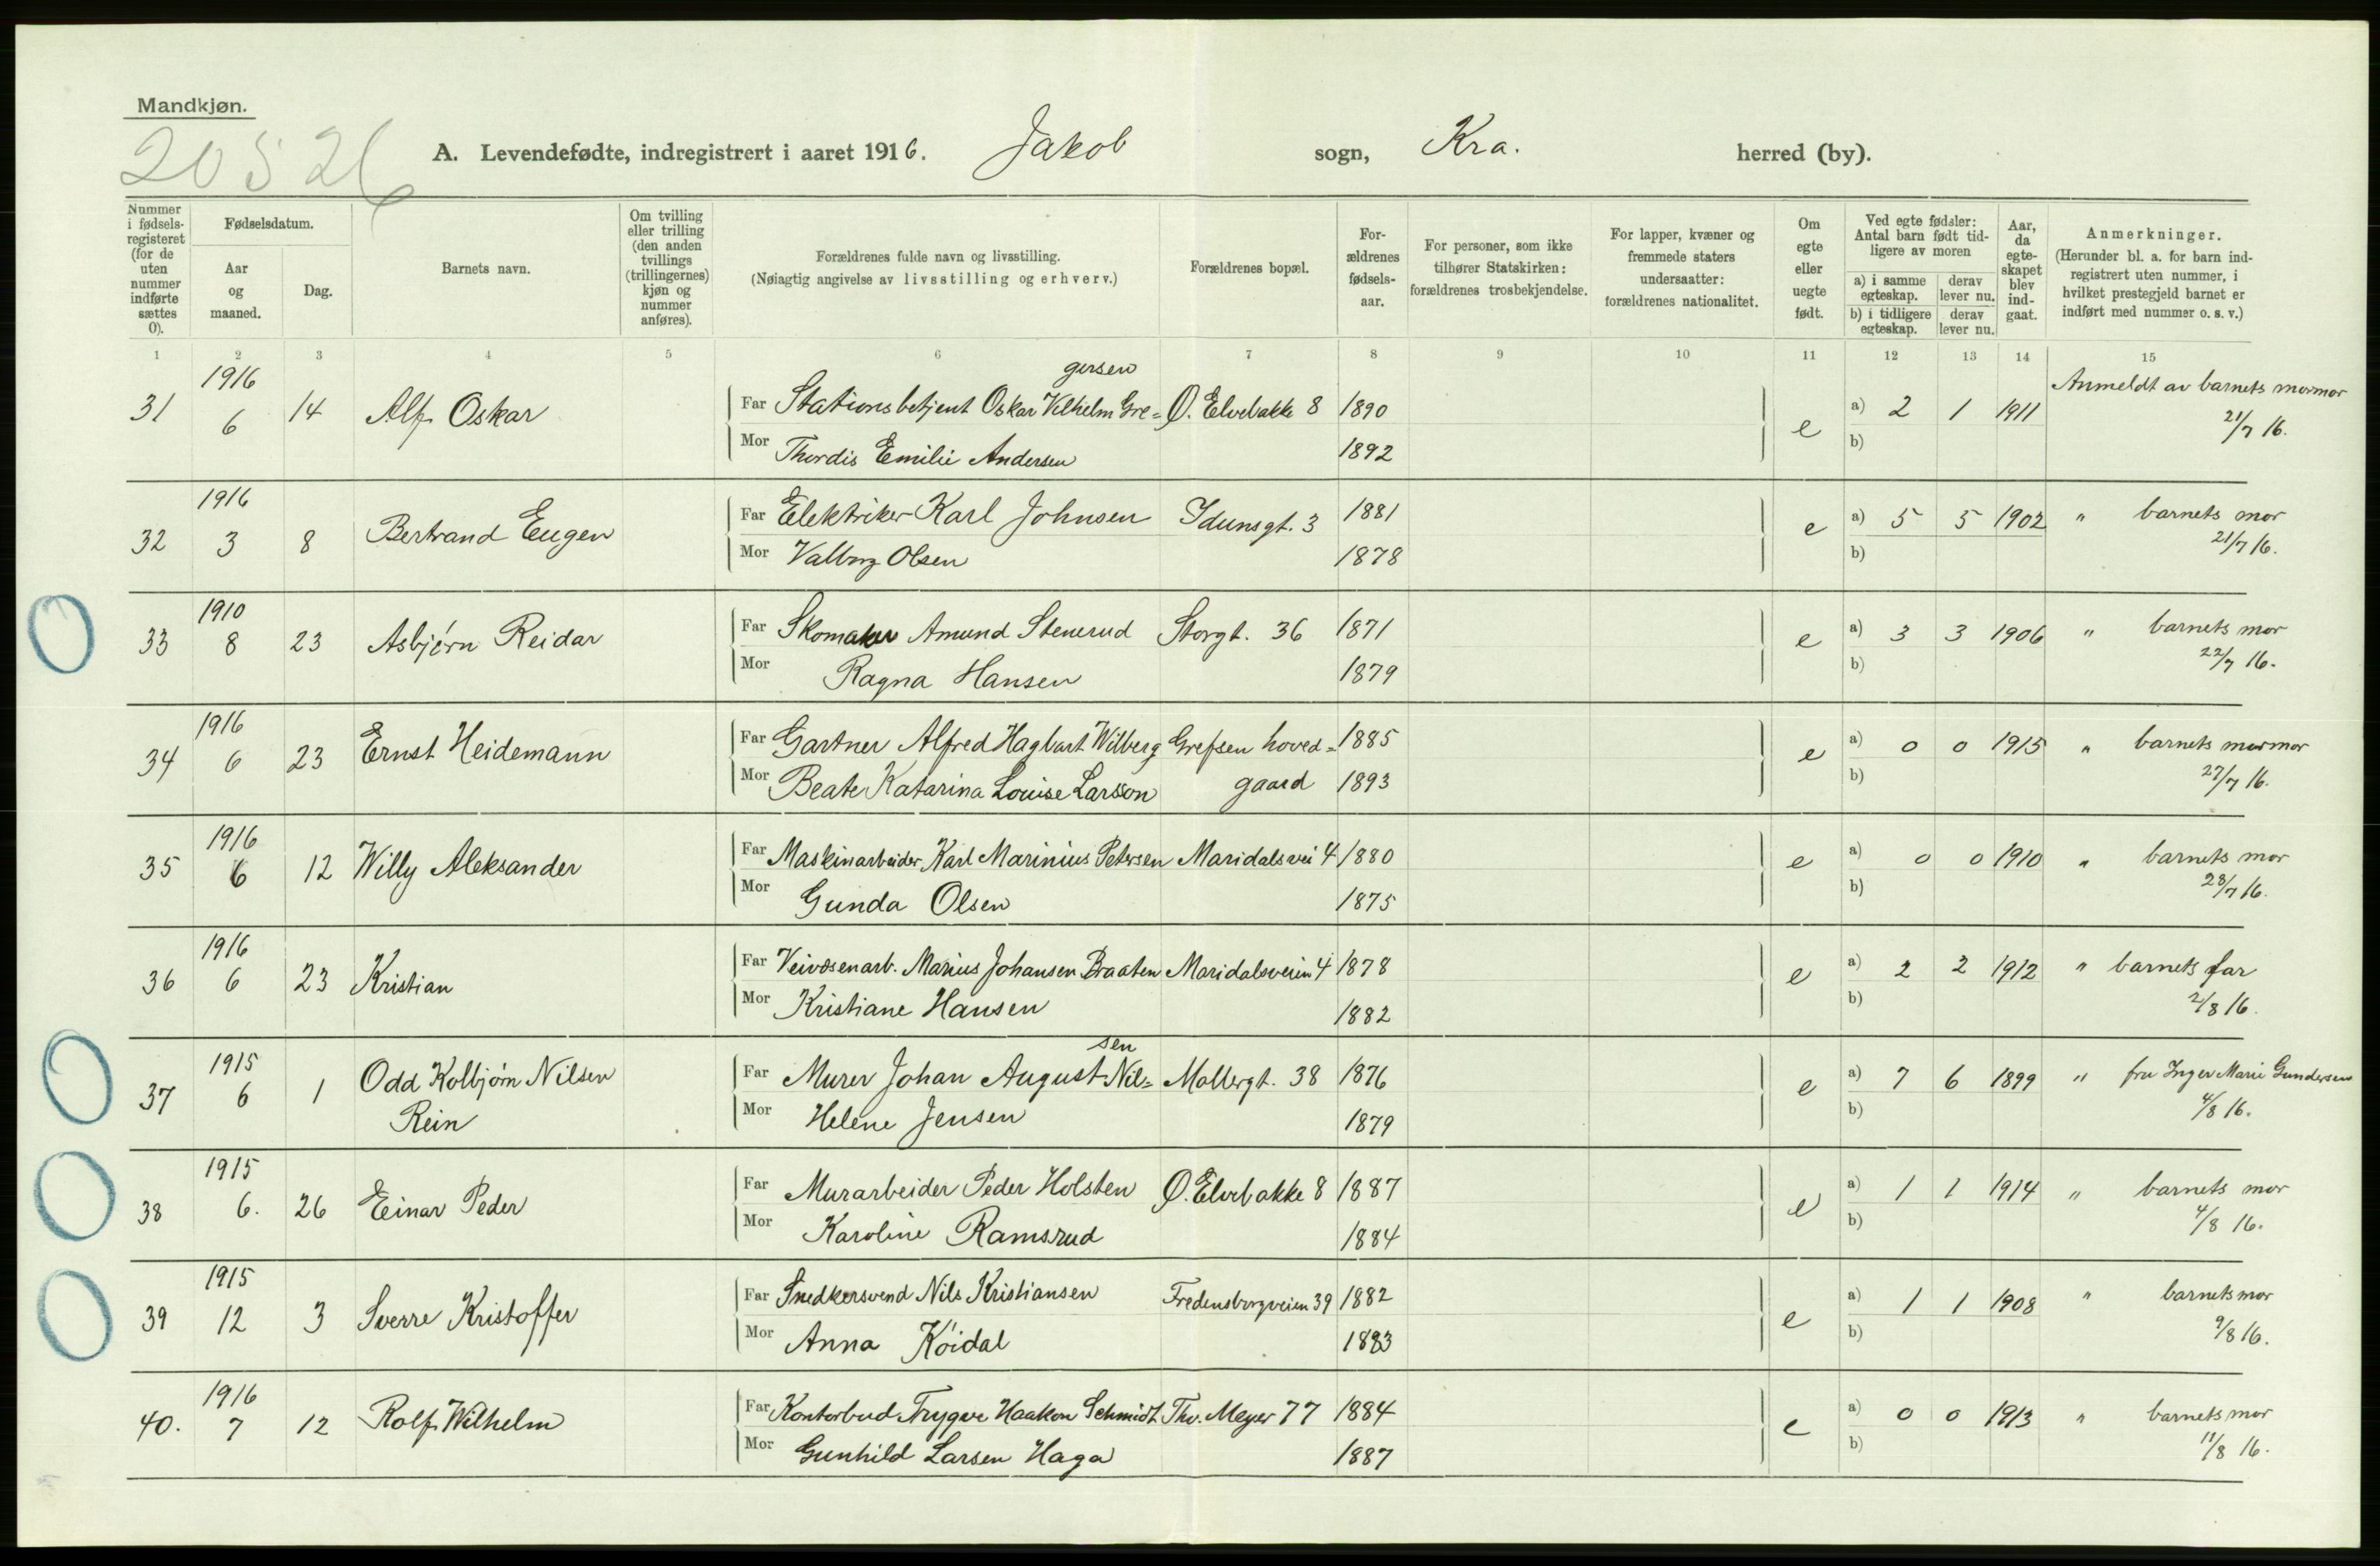 Mandkjøn.
20526
A. Levendefødte, indregistrert i aaret 1916. Jakob sogn, Kra. herred (by).
Nummer i fødselsregisteret (for de uten nummer indførte sættes 0).
Fødselsdatum.
Aar og maaned.
Dag.
Barnets navn.
Om tvilling eller trilling (den anden tvillings (trillingernes) kjøn og nummer anføres).
Forældrenes fulde navn og livsstilling.
(Nøiagtig angivelse av livsstilling og erhverv.)
Forældrenes bopæl.
Forældrenes fødselsaar.
For personer, som ikke tilhører Statskirken: forældrenes trosbekjendelse.
For lapper, kvæner og fremmede staters undersaatter: forældrenes nationalitet.
Om egte eller uegte født.
Ved egte fødsler: Antal barn født tidligere av moren
a) i samme egteskap. derav lever nu.
b) i tidligere egteskap. derav lever nu.
Aar, da egteskapet blev indgaat.
Anmerkninger.
(Herunder bl. a. for barn indregistrert uten nummer, i hvilket prestegjeld barnet er indført med nummer o. s. v.)
1 2 3 4 5 6 7 8 9 10 11 12 13 14 15
31 1916 6 14 Alf Oskar
Far Stationsbetjent Oskar Vilhelm Gre=gersen Ø. Elvebakke 8 1890 e a) 2 1 1911 Anmeldt av barnets mormor
Mor Thordis Emilie Andersen 1892 b) 21/7 16.
32 1916 3 8 Bertrand Eugen
Far Elektriker Karl Johnsen Idunsgt. 3 1881 e a) 5 5 1902 " barnets mor
Mor Valborg Olsen 1878 b) 21/7 16.
33 1910 8 23 Asbjørn Reidar
Far Skomaker Amund Stenerud Storgt. 36 1871 e a) 3 3 1906 " barnets mor
Mor Ragna Hansen 1879 b) 22/7 16.
34 1916 6 23 Ernst Heidemann
Far Gartner Alfred Hagbart Wilberg Grefsen hoved= 1885 e a) 0 0 1915 " barnets mormor
Mor Beate Katarina Louise Larsson gaard 1893 b) 27/7 16.
35 1916 6 12 Willy Aleksander
Far Maskinarbeider Karl Marinius Petersen Maridalsvei 4 1880 e a) 0 0 1910 " barnets mor
Mor Gunda Olsen 1875 b) 28/7 16.
36 1916 6 23 Kristian
Far Veivæsenarb. Marius Johansen Braaten Maridalsveien 4 1878 e a) 2 2 1912 " barnets far
Mor Kristiane Hansen 1882 b) 2/8 16.
37 1915 6 1 Odd Kolbjørn Nilsen Rein
Far Murer Johan August Nil=sen Møllergt. 38 1876 e a) 7 6 1899 " fru Inger Marie Gundersen
Mor Helene Jensen 1879 b) 4/8 16.
38 1915 6. 26 Einar Peder
Far Murarbeider Peder Holsten Ø. Elvebakke 8 1887 e a) 1 1 1914 " barnets mor
Mor Karoline Ramsrud 1884 b) 4/8 16.
39 1915 12 3 Sverre Kristoffer
Far Snedkersvend Nils Kristiansen Fredensborgveien 39 1882 e a) 1 1 1908 " barnets mor
Mor Anna Köidal 1883 b) 9/8 16.
40. 1916 7 12 Rolf Wilhelm
Far Kontorbud Trygve Haakon Schmidt Thv. Meyer 77 1884 e a) 0 0 1913 " barnets mor
Mor Gunhild Larsen Haga 1887 b) 11/8 16.